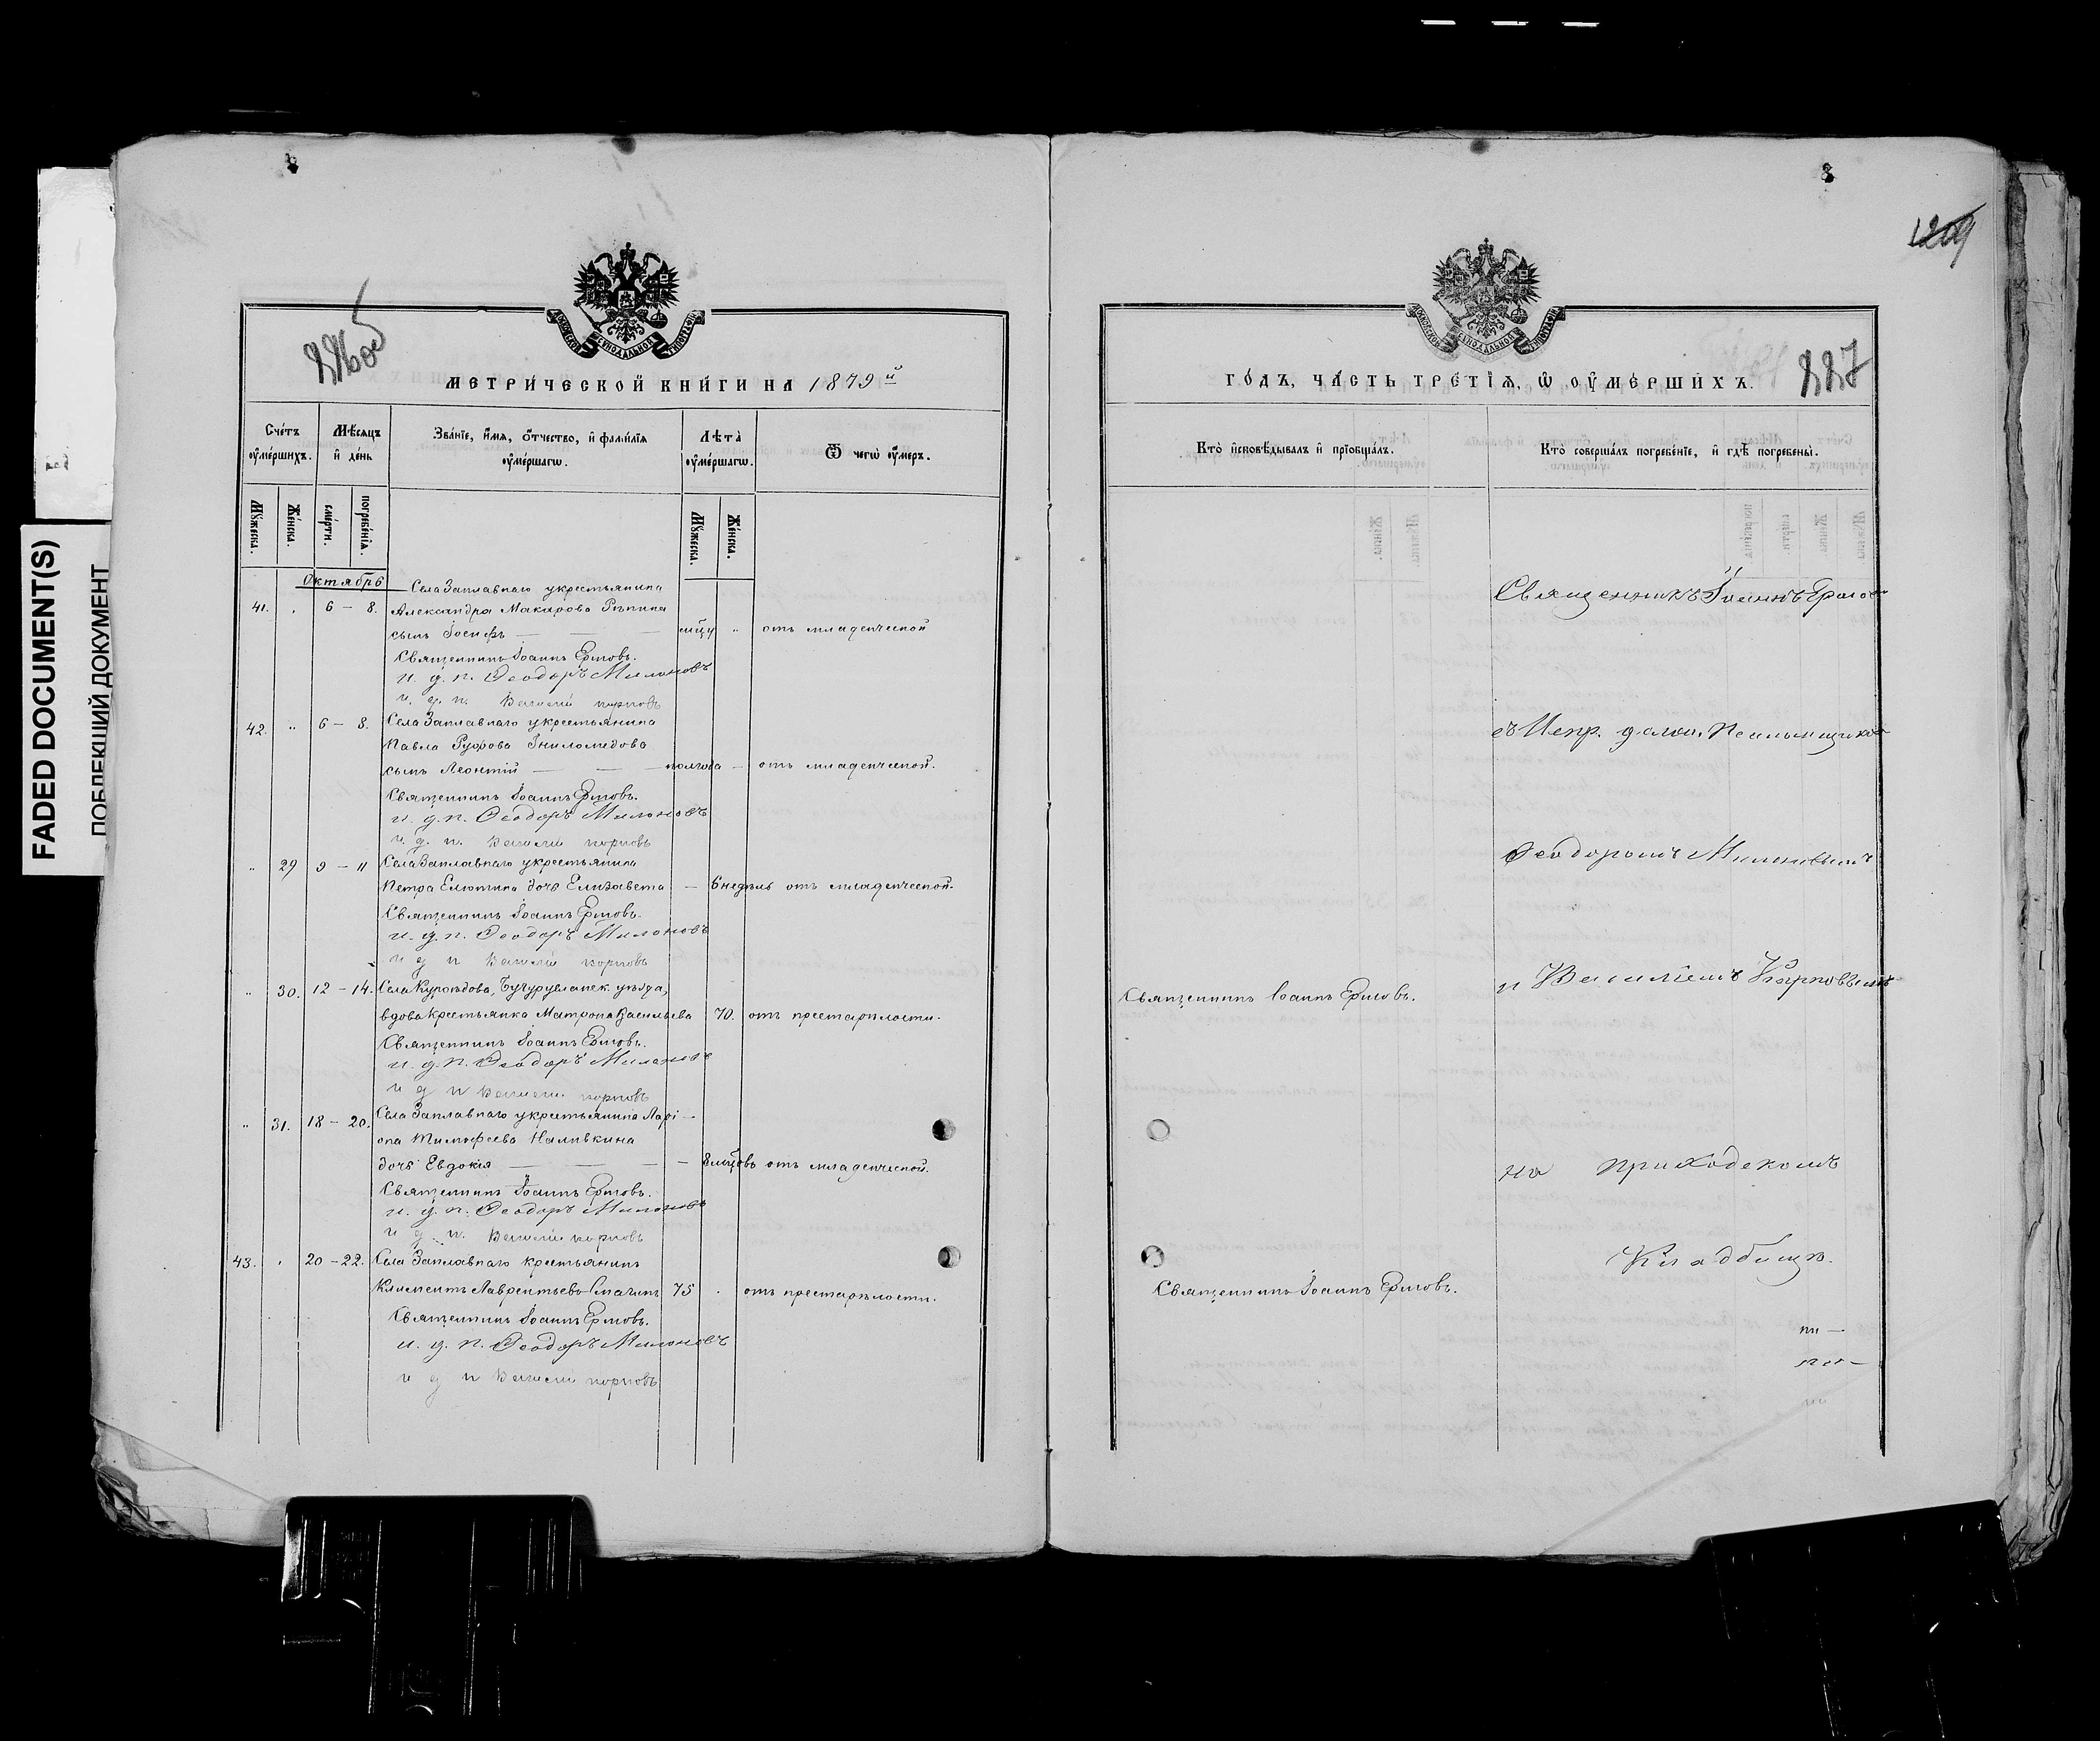 FADED DOCUMENT(S)
ПОБЛЕКШИЙ ДОКУМЕНТ
МЕТРИЧЕСКОЙ КНИГИ НА 1879й
Счетъ оумершихъ.
Мѣсяцъ и день
Званіе, имя, отчество, и фамилія оумершагѡ.
Лѣта оумершагѡ.
Ѿ чегѡ оумеръ.
Мужеска.
Женска.
смерти.
погребенія.
Мужеска.
Женска.
Октябрь
Села Заплавнаго у крестьянина
41. „ 6 – 8. Александра Макарова Рѣпина
сынъ Іосифъ — — — мцу „ отъ младенческой
Священникъ Іоаннъ Ерговъ.
и. д. п. Ѳеодоръ Милоновъ
и. д. п. Василій Карповъ
42. „ 6 – 8. Села Заплавнаго у крестьянина
Павла Руфова Гниломедова
сынъ Леонтій — — — полгода — отъ младенческой.
Священникъ Іоаннъ Ерговъ.
и. д. п. Ѳеодоръ Милоновъ
и. д. п. Василій Карповъ
„ 29 9 – 11 Села Заплавнаго у крестьянина
Петра Елютина дочь Елизавета — 6 недѣль отъ младенческой.
Священникъ Іоаннъ Ерговъ.
и. д. п. Ѳеодоръ Милоновъ
и д п Василій Карповъ
„ 30. 12 – 14. Села Куроѣдова, Бугурусланск. уѣзда,
вдова крестьянка Матрона Васильева 70. отъ престарѣлости.
Священникъ Іоаннъ Ерговъ.
и. д. п. Ѳеодоръ Милоновъ
и д п Василій Карповъ
„ 31. 18 – 20. Села Заплавнаго у крестьянина Ларі-
она Тимофеева Наливкина
дочь Евдокія — — — — 8 мцовъ отъ младенческой.
Священникъ Іоаннъ Ерговъ.
и. д. п. Ѳеодоръ Милоновъ
и д. п. Василій Карповъ
43. „ 20 – 22. Села Заплавнаго крестьянинъ
Климентъ Лаврентьевъ 75 „ отъ престарѣлости.
Священникъ Іоаннъ Ерговъ.
и. д. п. Ѳеодоръ Милоновъ
и д п Василій Карповъ
227
ГОДЪ, ЧАСТЬ ТРЕТІЯ, Ѡ ОУМЕРШИХЪ.
Кто исповѣдывалъ и пріобщалъ.
Кто совершалъ погребеніе, и гдѣ погребены.
Священникъ Іоаннъ Ергов
съ Испр. долж. Псаломщиков
Ѳеодоромъ Милоновымъ
Священникъ Іоаннъ Ерговъ.
и Василіемъ Карповымъ
на приходскомъ
Кладбищѣ.
Священникъ Іоаннъ Ерговъ.